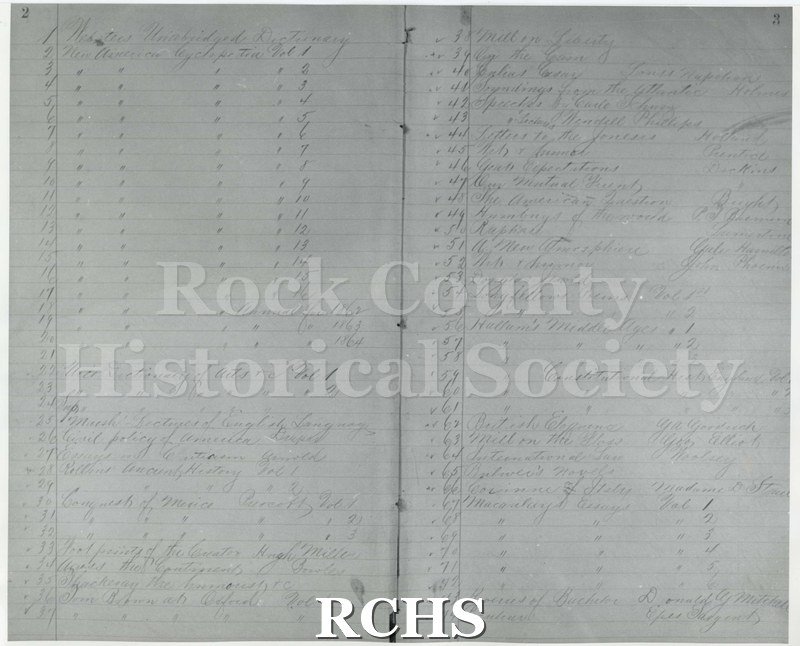 2
1 Websters Unabridged Dictionary
2 New American Cyclopedia Vol 1
3 " " " 2
4 " " " 3
5 " " " 4
6 " " " 5
7 " " " 6
8 " " " 7
9 " " " 8
10 " " " 9
11 " " " 10
12 " " " 11
13 " " " 12
14 " " " 13
15 " " " 14
16 " " " 15
17 " "
18 " " Annual for 1862
19 " " " " 1863
20 " " 1864
21
22 Dictionary of Arts &c Vol 1
23
24
25 Marsh Lectures of English Language
26 Civil policy of America Draper
27 Essays in Criticism Arnold
28 Rollins Ancient History Vol 1
29 " " " "
30 Conquest of Mexico Prescott Vol 1
31 " " " " " 2
32 " " " " " 3
33 Foot prints of the Creator Hugh Miller
34 Across the Continent Bowles
35 Thackeray the humorist &c
36 Tom Brown at Oxford Vol
37 " " "
3
38 Mill on Liberty
39
40 Louis Napoleon
41 Soundings from the Atlantic Holmes
42 Speeches by Carl Schurz
43 Wendell Phillips
44 Letters to the Joneses Holland
45 Wit & humor Prentice
46 Great Expectations Dickens
47 Our Mutual Friend
48 The American Question Bright
49 Humbugs of the world P T Barnum
50 Raphael
51 A New Atmosphere Gail Hamilton
52 John Phoenix
53
54 Longfellows Poems Vol 1
55 " 2
56 Hallam's Middle Ages " 1
57 " " " 2
58 "
59 " Constitutional Hist England Vol 1
60 " " " 2
61 " "
62 British Eloquence GA Goodrich
63 Mill on the Floss Geo Elliot
64 International Law Woolsey
65 Bulwer's Novels
66 Corinne of Italy Madame D Stael
67 Macaulay's Essays Vol 1
68 " " " 2
69 " " " 3
70 " " " 4
71 " " " 5
72 " " " 6
73 Reveries of Bachelor Donald G Mitchell
Epes Sargent
Rock County
Historical Society
RCHS